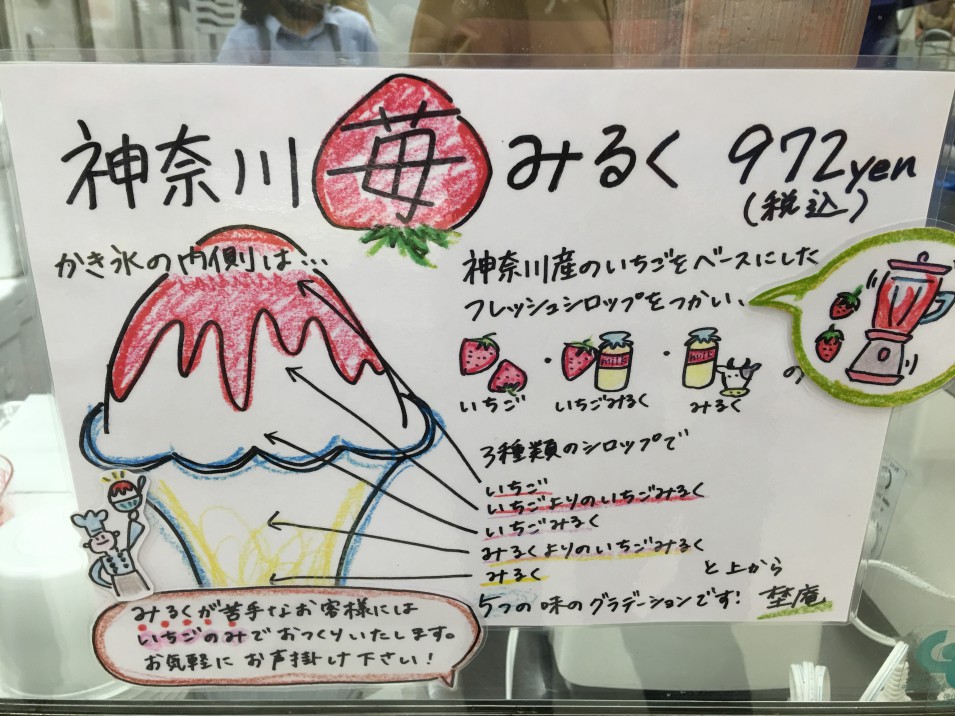 神奈川苺みるく 972yen
(税込)
かき氷の内側は…
神奈川産のいちごをベースにした
フレッシュシロップをつかい、
milk
milk
いちご・いちごみるく・みるくの
3種類のシロップで
いちご
いちごよりのいちごみるく
いちごみるく
みるくよりのいちごみるく
みるく
と上から
5つの味のグラデーションです!
埜庵
みるくが苦手なお客様には
いちごのみでおつくりいたします。
お気軽にお声掛け下さい!